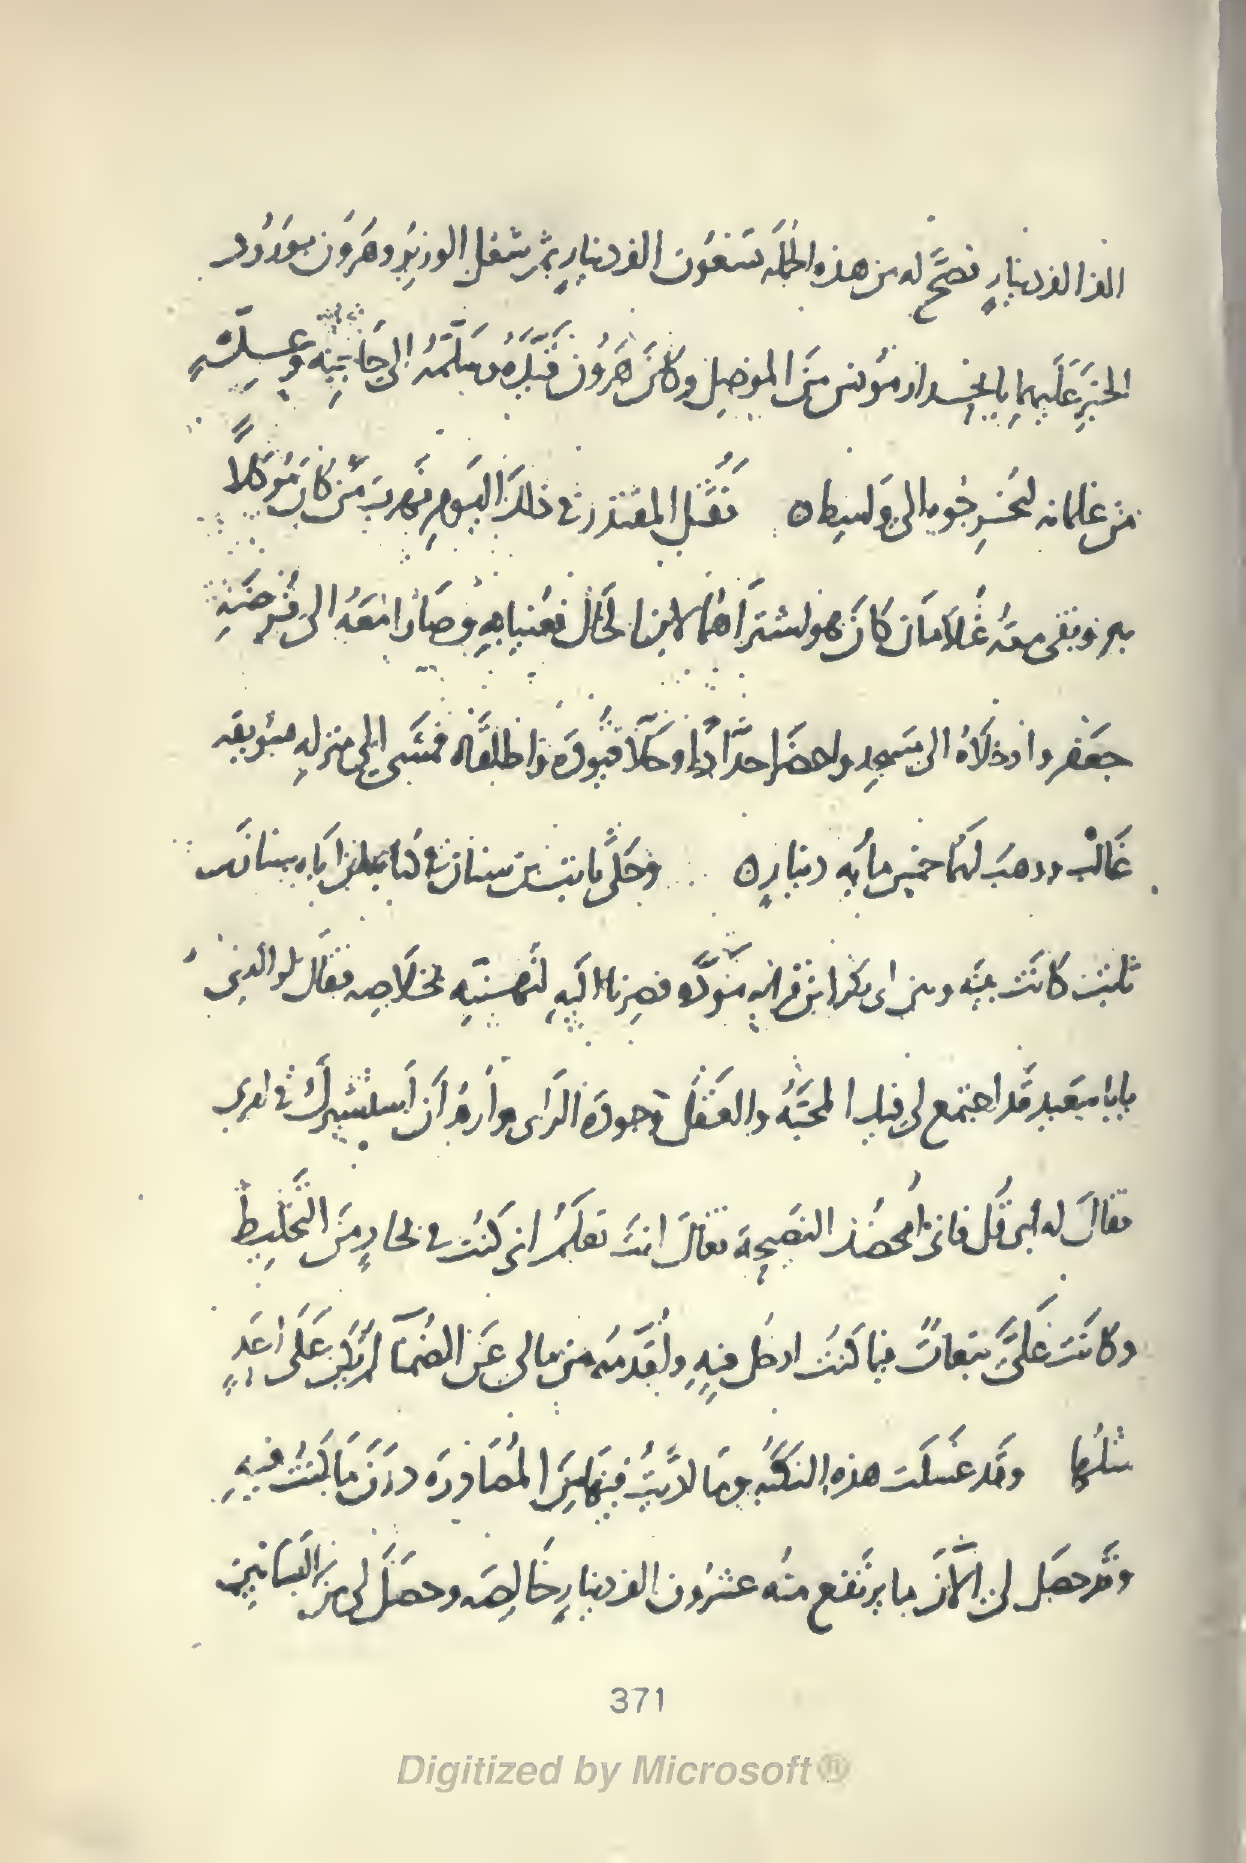 الف الف دينار فصَحّ له من هذه الجمله تسعون الف دينار ثم شغل الوزير وهرون بورود
الخبر عليهما بانحدار مؤنس من الموصل وكان هرون قَيَّدَهُ وسَلَّمَهُ الى حاجبه
من غلمانه ليخرجوه الى واسط ٥ فقُتل المقتدر في ذلك اليوم فهرب من كان موكلاً
به وبقى معه غلامان كان هو اشتراهما لابن الحال فعنيا به وصارا معه الى فرضه
جعفر وادخلاه الى مسجد واحضرا حدادا وحلّا قيوده واطلقاه فمشى الى منزله بسويقه
غالب ووهب لهما خمس مايه دينار ٥ وحكى ثابت بن سنان في كتابه ان اباه سنان بن
ثابت كانت بينه وبين ابى بكر ابن قرابه مودّه فصرنا اليه لتهنيته بخلاصه فقال لوالدى
يابا سعيد قد اجتمع لى فيك المحبّه والعقل وجوده الراى واريد ان استشيرك في امرى
فقال له ابى قل فانى امحضك النصيحة فقال انت تعلم انى كنت في بحار من التخليط
وكانت علىّ تبعات فيما كنت ادخل فيه واقدمه من مالى عن الضمنآ لم يكن على احد
مثلها وقد غسلت هذه النكبه وما اديت فيها من المصادره درن ما كنت فيه
وقد حصل لى الآن ما يرتفع منه عشرون الف دينار خالصه وحصل لى من البساتين
371
Digitized by Microsoft®